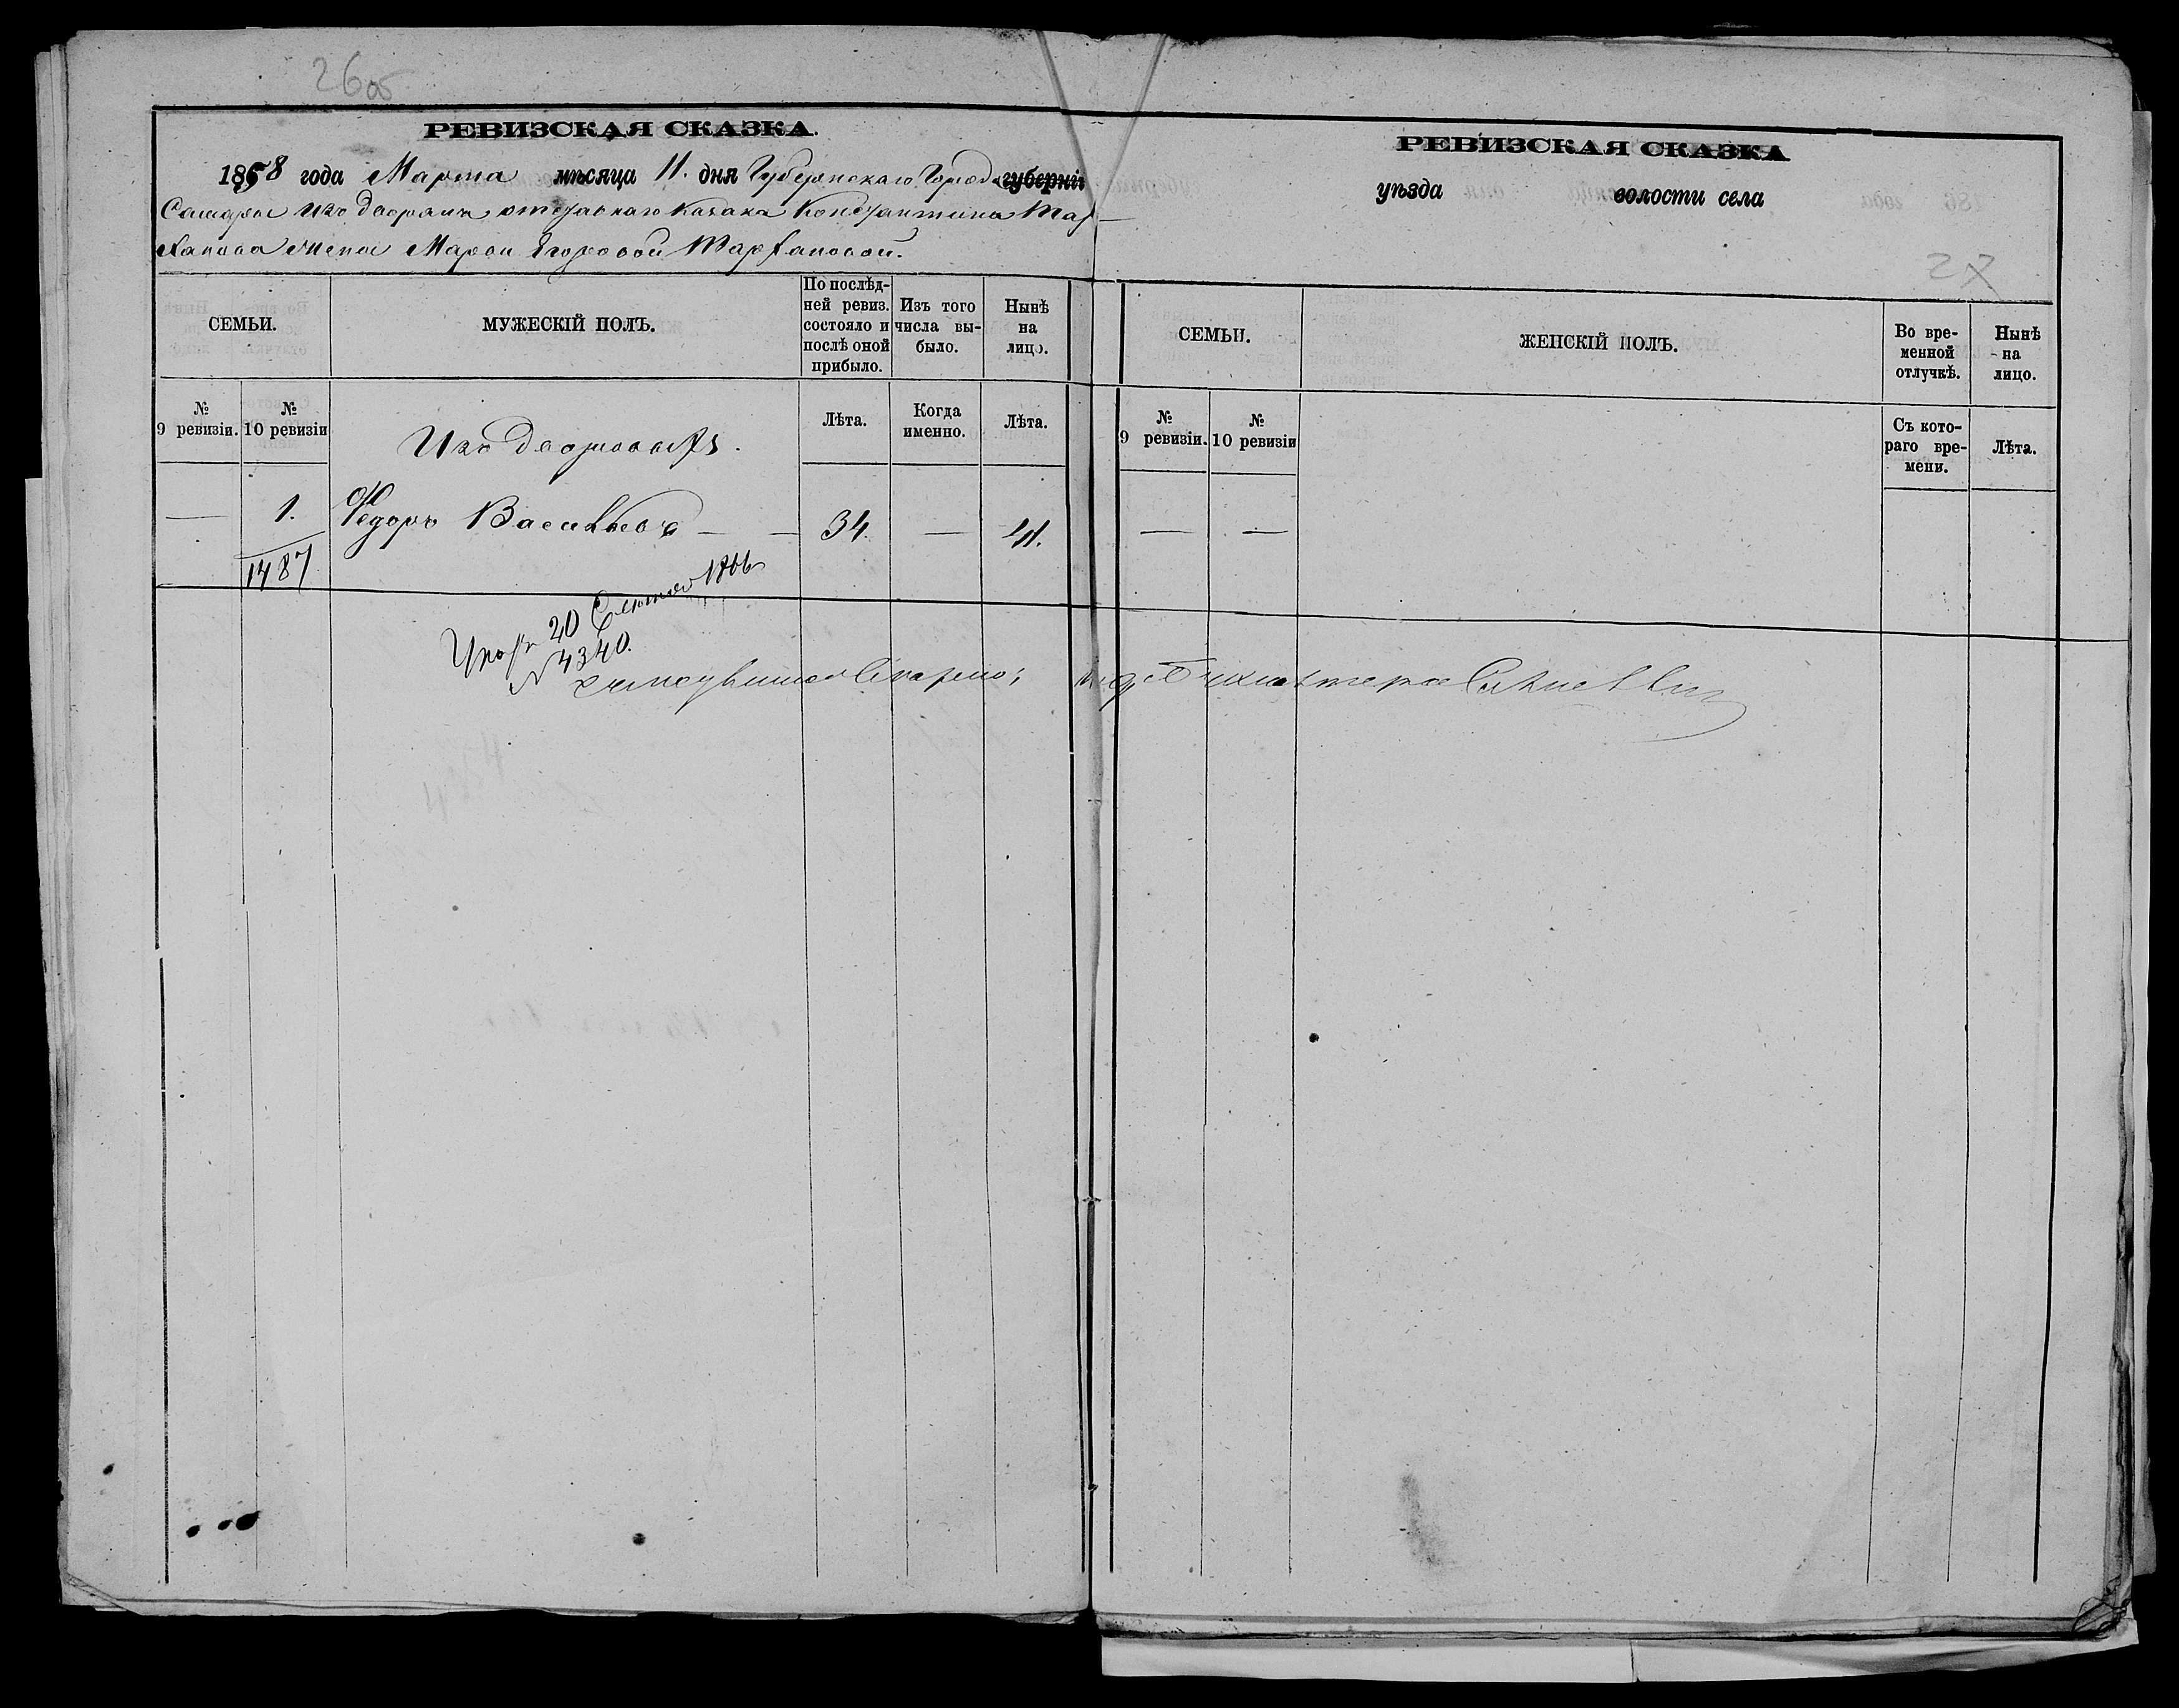 26об
РЕВИЗСКАЯ СКАЗКА.
1858 года Марта мѣсяца 11. дня Губернскаго Города губерніи
Самары изъ дворянъ отставнаго казака Константина Тар-
ханова жены Марьи Егоровой Тархановой.
СЕМЬИ.
МУЖЕСКІЙ ПОЛЪ.
По послѣд-
ней ревиз.
состояло и
послѣ оной
прибыло.
Изъ того
числа вы-
было.
Нынѣ
на
лицо.
№
9 ревизіи.
№
10 ревизіи
Изъ дворовыхъ.
Лѣта.
Когда
именно.
Лѣта.
— 1. Федоръ Васильевъ — — 34. — 41.
1487
20 1866
№ 4340.
РЕВИЗСКАЯ СКАЗКА
уѣзда волости села
27
СЕМЬИ.
ЖЕНСКІЙ ПОЛЪ.
Во вре-
менной
отлучкѣ.
Нынѣ
на
лицо.
№
9 ревизіи.
№
10 ревизіи
Съ кото-
раго вре-
мени.
Лѣта.
— —